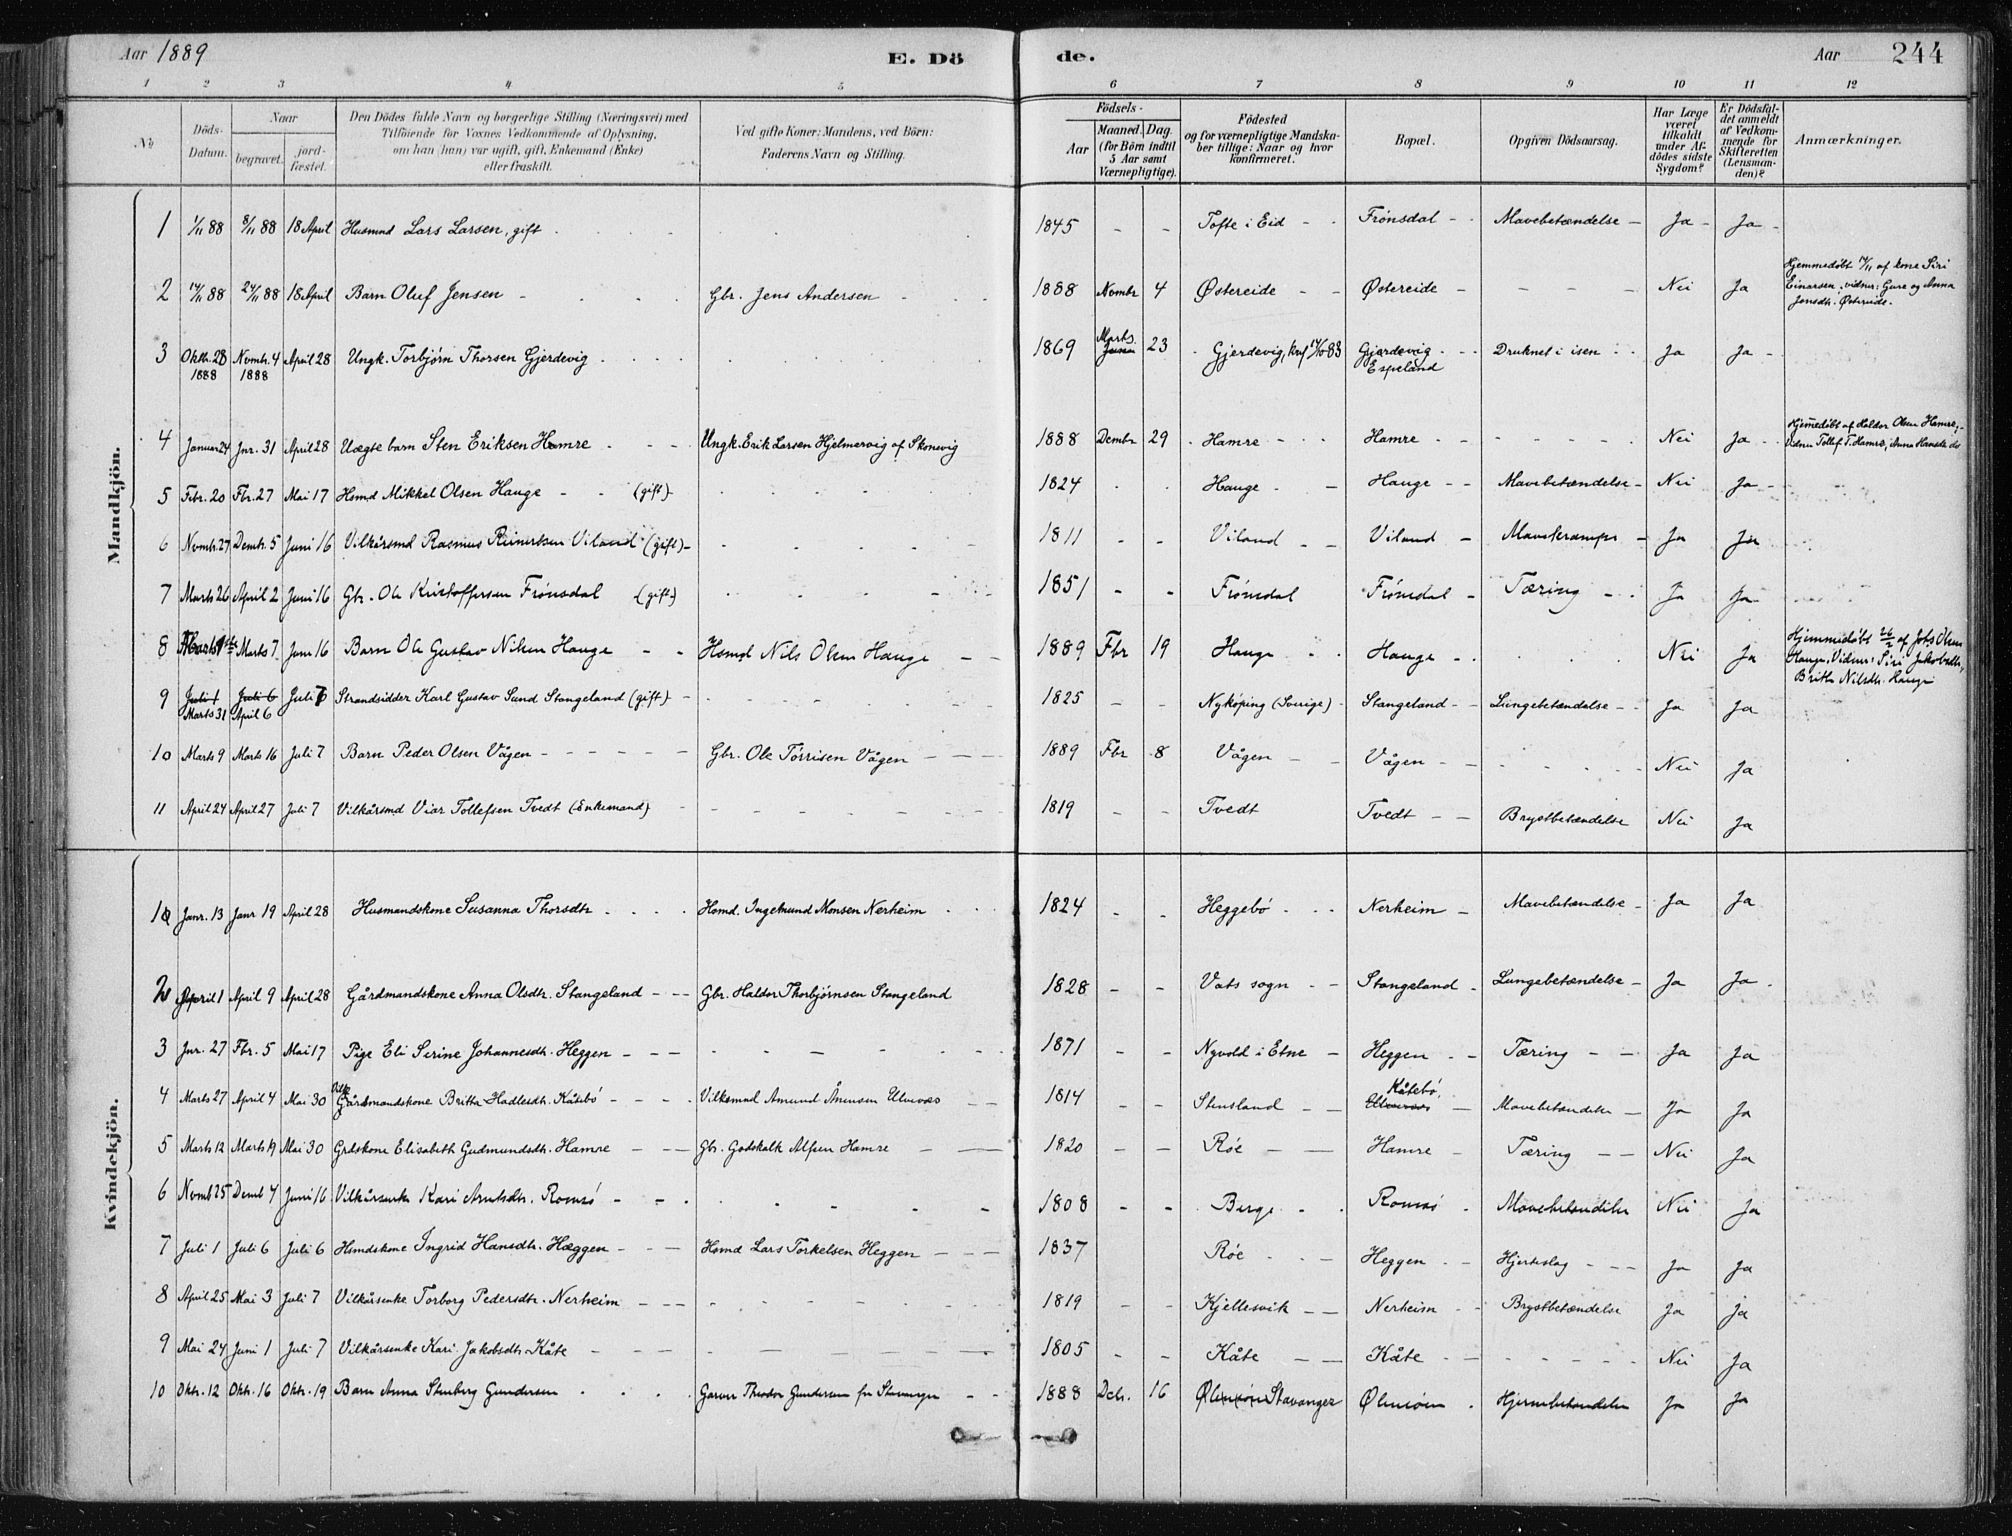 Aar 1889 E. Dö de. Aar 244
1 2 3 4 5 6 7 8 9 10 11 12
No
Döds-
Datum.
Naar
begravet.
jord-
fæstet.
Den Dödes fulde Navn og borgerlige Stilling (Næringsvei) med
Tilföiende for Voxnes Vedkommende af Oplysning,
om han (hun) var ugift, gift, Enkemand (Enke)
eller fraskilt.
Ved gifte Koner: Mandens, ved Börn:
Faderens Navn og Stilling.
Födsels-
Aar
Maaned. Dag.
(for Börn indtil
5 Aar samt
Værnepligtige).
Födested
og for værnepligtige Mandska-
ber tillige: Naar og hvor
konfirmeret.
Bopæl.
Opgiven Dödsaarsag.
Har Læge
været
tilkaldt
under Af-
dödes sidste
Sygdom?
Er Dödsfal-
det anmeldt
af Vedkom-
mende for
Skifteretten
(Lensman-
den)?
Anmærkninger.
Mandkjön.
1 1/11 88 8/11 88 18 April Husmnd Lars Larsen, gift 1845 - - Tofte i Eid Frönsdal Mavebetændelse Ja Ja
2 14/11 88 24/11 88 18 April Barn Oluf Jensen Gbr. Jens Andersen 1888 Novmbr 4 Østereide Østereide Nei Ja
Hjemmedøbt 14/11 af kone Siri
Einarsen, vidner: Gure og Anna
Jonsdtr. Østereide.
3 Oktb. 28 1888 Novmb. 4 1888 April 28 Ungk. Torbjørn Thorsen Gjerdevig 1869 Marts 23 Gjerdevig, knf 83 Gjærdevig Espeland Druknet i isen Ja Ja
4 Januar 24 Jnr. 31 April 28 Uægte barn Sten Eriksen Hamre Ungk. Erik Larsen Hjelmervig af Skonevig 1888 Dembr 29 Hamre Hamre Nei Ja
Hjemmedøbt af Haldor Olsen Hamre,
Vidner Tollef T. Hamre, Anna
5 Febr. 20 Fbr. 27 Mai 17 Hsmd Mikkel Olsen Hauge (gift) 1824 Hauge Hauge Mavebetændelse Nei Ja
6 Novmb. 27 Dembr. 5 Juni 16 Vilkårsmd Rasmus Reinertsen Viland (gift) 1811 Viland Viland Mavekrampe Ja Ja
7 Marts 26 April 2 Juni 16 Gbr. Ole Kristoffersen Frönsdal (gift) 1851 Frönsdal Frönsdal Tæring Ja Ja
8 Marts 1ste Marts 7 Juni 16 Barn Ole Gustav Nilsen Hauge Hsmd Nils Olsen Hauge 1889 Fbr 19 Hauge Hauge Nei Ja
Hjemmedøbt 26/2 af Jobs Olsen
Hauge. Vidner: Siri Jakobsdtr,
Britha Nilsdtr. Hauge
9 Juli 1 Marts 31 Juli 6 April 6 Juli 7 Strandsidder Karl Gustav Sund Stangeland (gift) 1825 Nykøping (Sverige) Stangeland Lungebetændelse Ja Ja
10 Marts 9 Marts 16 Juli 7 Barn Peder Olsen Vågen Gbr. Ole Törrisen Vågen 1889 Fbr 8 Vågen Vågen Nei Ja
11 April 24 April 27 Juli 7 Vilkårsmd Viar Tollefsen Tvedt (Enkemand) 1819 Tvedt Tvedt Brystbetændelse Nei Ja
Kvindekjön.
1 Janr. 13 Janr 19 April 28 Husmandskone Susanna Thorsdtr Hsmd. Ingemund Monsen Nerheim 1824 Heggebö Nerheim Mavebetændelse Ja Ja
2 April 1 April 9 April 28 Gårdmandskone Anna Olsdtr. Stangeland Gbr. Haldor Thorbjørnsen Stangeland 1828 Vats sogn Stangeland Lungebetændelse Ja Ja
3 Jnr. 27 Fbr. 5 Mai 17 Pige Eli Serine Johannesdtr. Heggen 1871 Nyvold i Etne Heggen Tæring Ja Ja
4 Marts 27 April 4 Mai 30 Vilk Gårdmandskone Britta Hadlesdtr. Kåtebö Vilksmad Amund Åmunsen Ulvevæs 1814 Stensland Kåtebö Mavebetændelse Ja Ja
5 Marts 12 Marts 19 Mai 30 Grdskone Elisabeth Gudmundsdtr. Hamre Gbr. Godskalk Alfsen Hamre 1820 Röe Hamre Tæring Nei Ja
6 Novmb 25 Demb 4 Juni 16 Vilkårsenke Kari Arntsdtr. Romsö 1808 Berge Romsö Mavebetændelse Nei Ja
7 Juli 1 Juli 6 Juli 6 Hsmdskone Ingrid Hansdtr. Hæggen Hsmd Lars Torkelsen Heggen 1837 Röe Heggen Hjerteslag Ja Ja
8 April 25 Mai 3 Juli 7 Vilkårsenke Torborg Pedersdtr. Nerheim 1819 Kjellesvik Nerheim Brystbetændelse Ja Ja
9 Mai 24 Juni 1 Juli 7 Vilkårsenke Kari Jakobsdtr. Kåte 1805 Kåte Kåte Nei Ja
10 Oktr. 12 Oktr. 16 Oktr. 19 Barn Anna Stenberg Gundersen Garver Theodor Gundersen fra Stavanger 1888 Dcbr. 16 Ølensöen Stavanger Ølensöen Hjernebetændelse Ja Ja